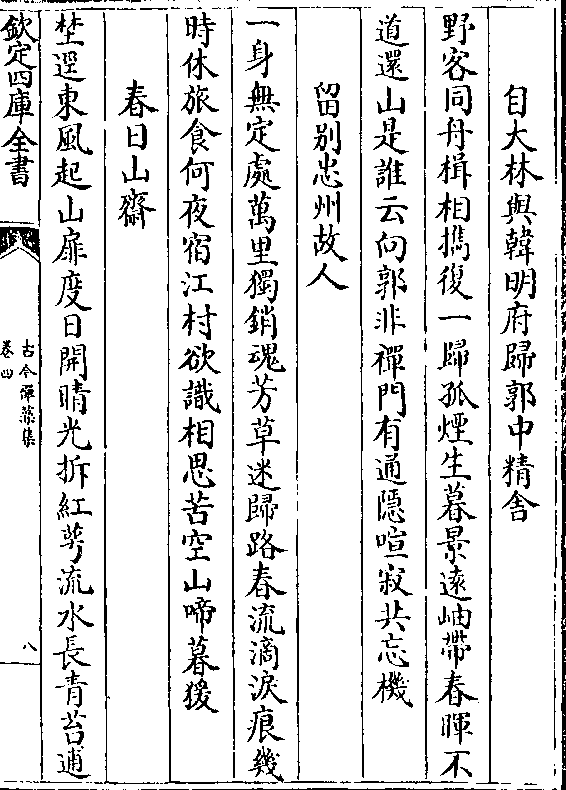 自大林與韓明府歸郭中精舍
野客同舟楫相擕復一歸孤煙生暮景遠岫帶春暉不
道還山是誰云向郭非禪門有通隱喧寂共忘機
留別忠州故人
一身無定處萬里獨銷魂芳草迷歸路春流滴淚痕幾
時休旅食何夜宿江村欲識相思苦空山啼暮猨
春日山齋
埜逕東風起山扉度日開晴光拆紅萼流水長青苔逋
欽定四庫全書
古今禪藻集
卷四
八